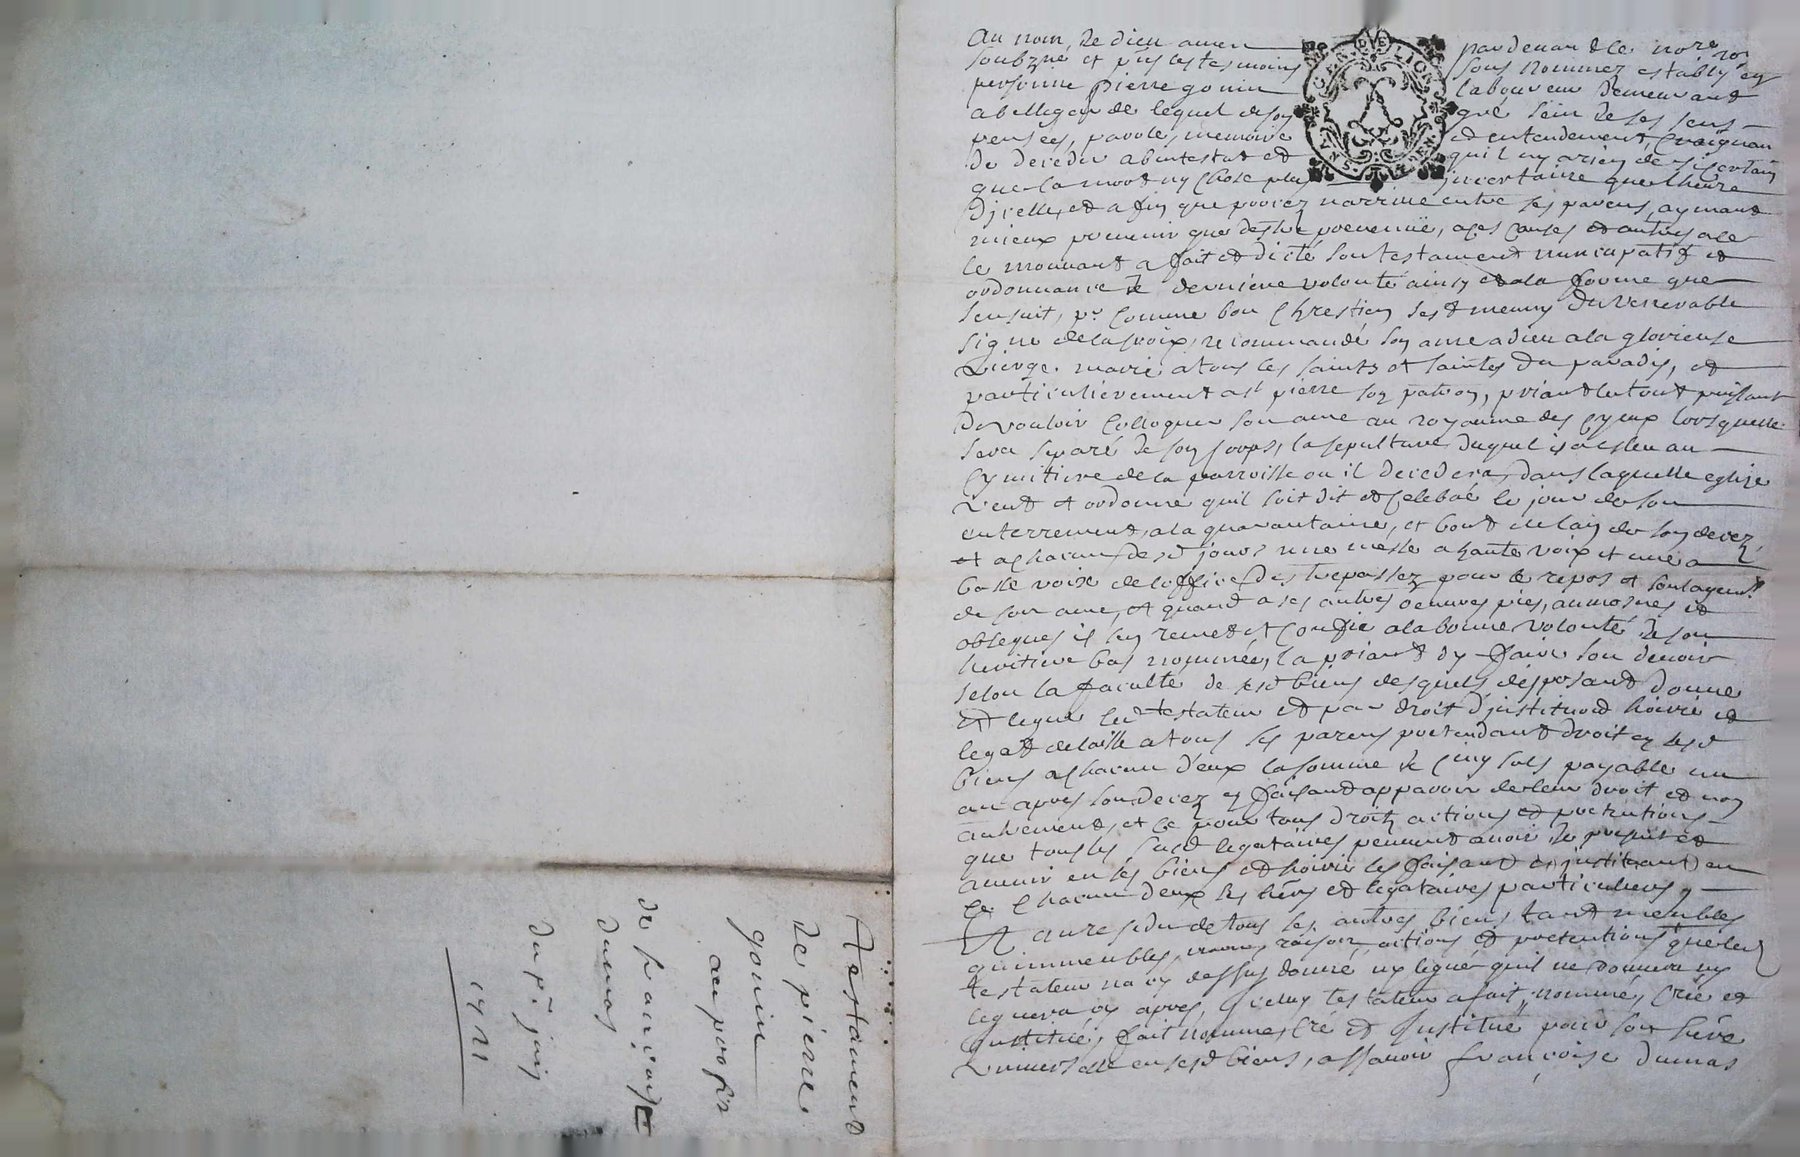 Testament
de pierre
gonin
au profit
de francoise
dumas
du pr. juin
1721
GEN DE LION
DEN SOLZ
Au nom de dieu amen pardevant le nore roy
soubzné et puis les tesmoins sous nommez estably en
personne pierre gonin laboureur demeurant
a bellegarde lequel de son gré sein de ses sens
pensées, parole, memoire et entendement, craignan
de deceder abintestat et quil ny a rien de si certain
que la mort ny chose plus incertaine que lheure
dicelle, et afin que procez narrive entre ses parens, aymant
mieux prevenir que destre prevenüe, a ces causes et autres a ce
le mouvant a fait et dicté son testament nuncupatif et
ordonnance de derniere volonté ainsy et a la forme que
sensuit, pr. comme bon chrestien sest meuny du venerable
signe de la croix, recommandé son ame a dieu a la glorieuse
vierge marie, a tous les saints et saintes du paradis, et
particulierement a st pierre son patron, priant le tout puissant
de vouloir colloquer son ame au royaume des cyeux lors quelle
sera separé de son corps, la sepulture duquel il a esleu au
cymitiere de la parroisse ou il decedera, dans laquelle eglize
veut et ordonne quil soit dit et celebré le jour de son
enterrement, a la quarantaine, et bout de lan de son decez,
et a chacun desd jours une messe a haute voix et une a
basse voix de loffice des trepassez pour le repos et soulagemt
de son ame, et quand a ses autres oeuvres pies, aumosnes et
obseques il sen remet et confie a la bonne volonté de son
heritiere bas nommée, la priant dy faire son devoir
selon la faculté de sesd biens desquels disposant donne
et legue led testateur et par droit dinstitution hoirie et
legat delaisse a tous ses parens pretendant droit en sesd
biens a chacun deux la somme de cinq sols payable un
an apres son decez en faisant apparoir de leur droit et non
autrement, et ce pour tous droitz actions et pretentions
que tous les susd legataires peuvent avoir de present et
avenir en ses biens et hoirie les faisant et instituant en
ce chacun deux ses hers et legataires particuliers,
Et au residu de tous ses autres biens tant meubles
quimmeubles, noms raison, actions et pretentions que led
testateur na cy dessus donné ny legué quil ne donnera ny
leguera cy apres, iceluy testateur a fait, nommé, créé et
institué, fait nomme cré et institué pour son hére
universelle en sesd biens, assavoir françoise dumas